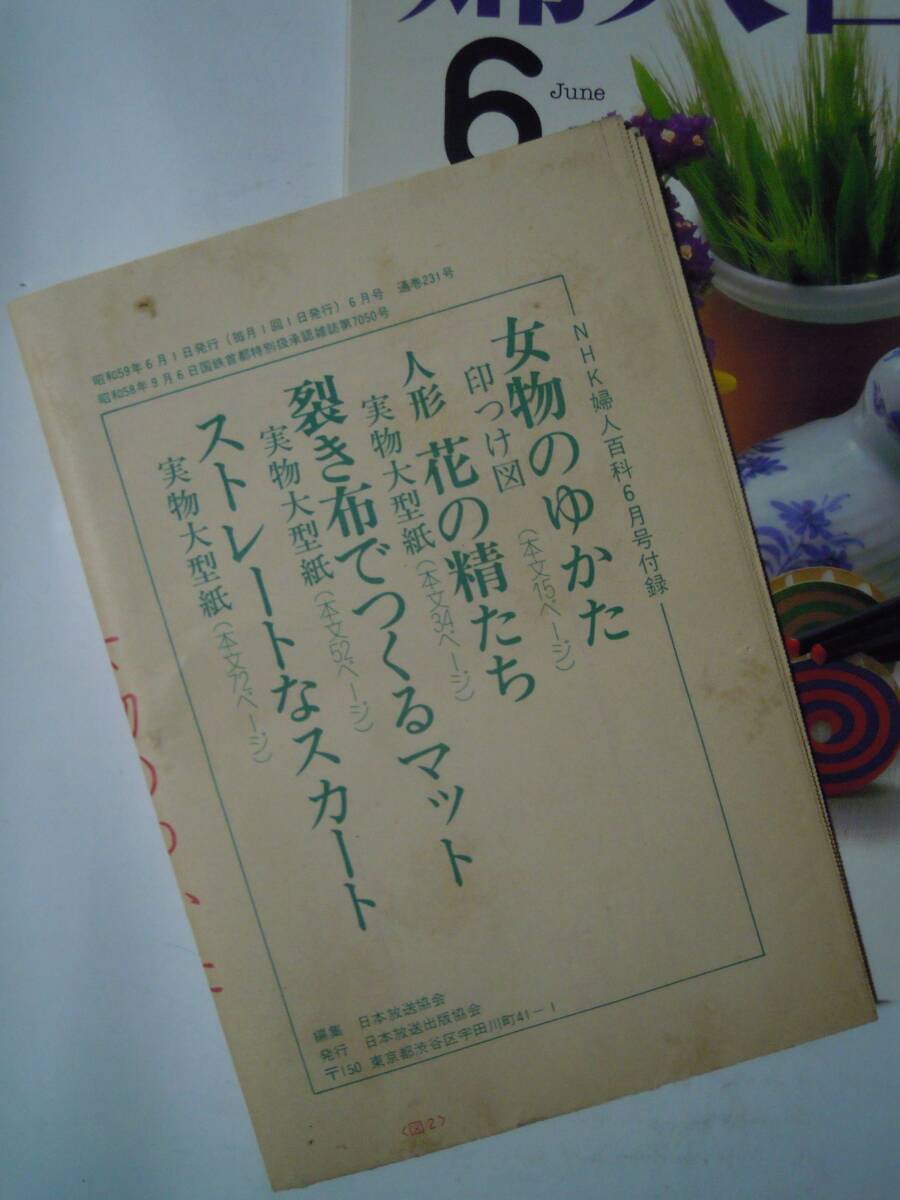 6
June
昭和59年6月1日発行(毎月1回1日発行)6月号 通巻231号
昭和58年9月6日国鉄首都特別扱承認雑誌第7050号
NHK婦人百科6月号付録
女物のゆかた
印つけ図(本文15ページ)
人形 花の精たち
実物大型紙(本文34ページ)
裂き布でつくるマット
実物大型紙(本文52ページ)
ストレートなスカート
実物大型紙(本文72ページ)
編集 日本放送協会
発行 日本放送出版協会
〒150 東京都渋谷区宇田川町41-1
〈図2〉